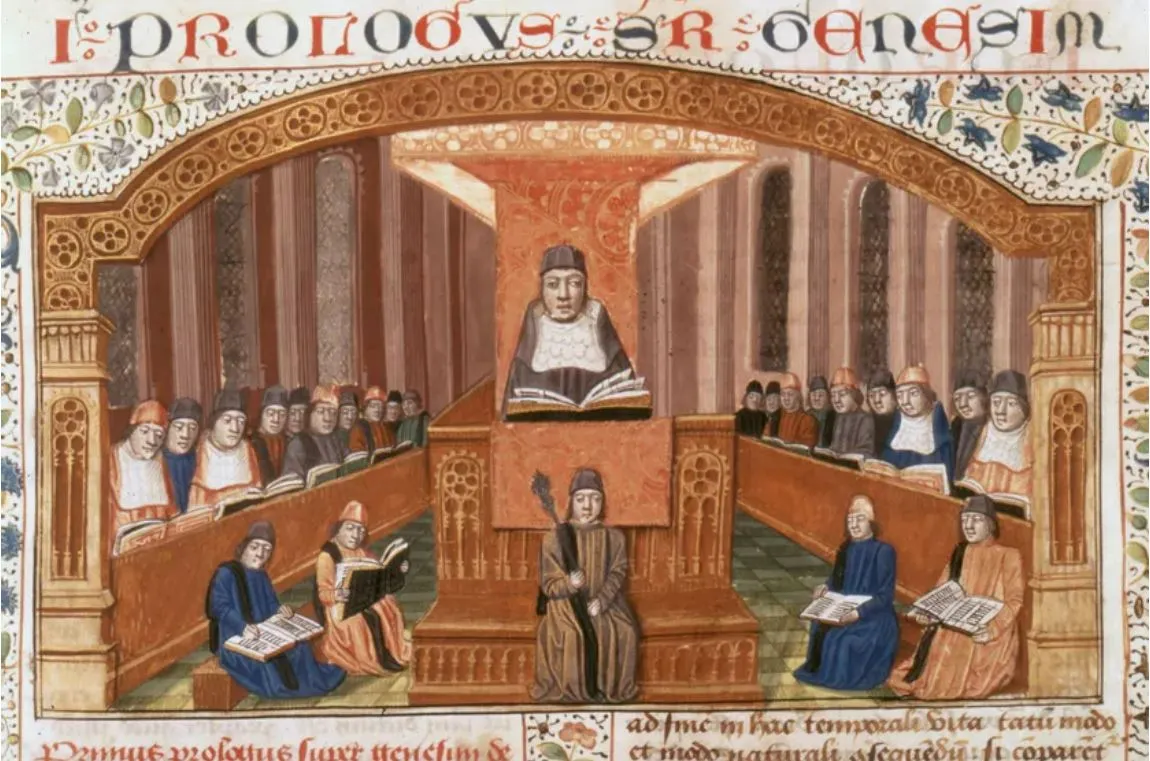 I PROLOGVS SR GENESIM
Primus prologus super genesim de
ad fine in hac temporali vita tātū modo
et modo naturali ꝯsequedū. si cōparet